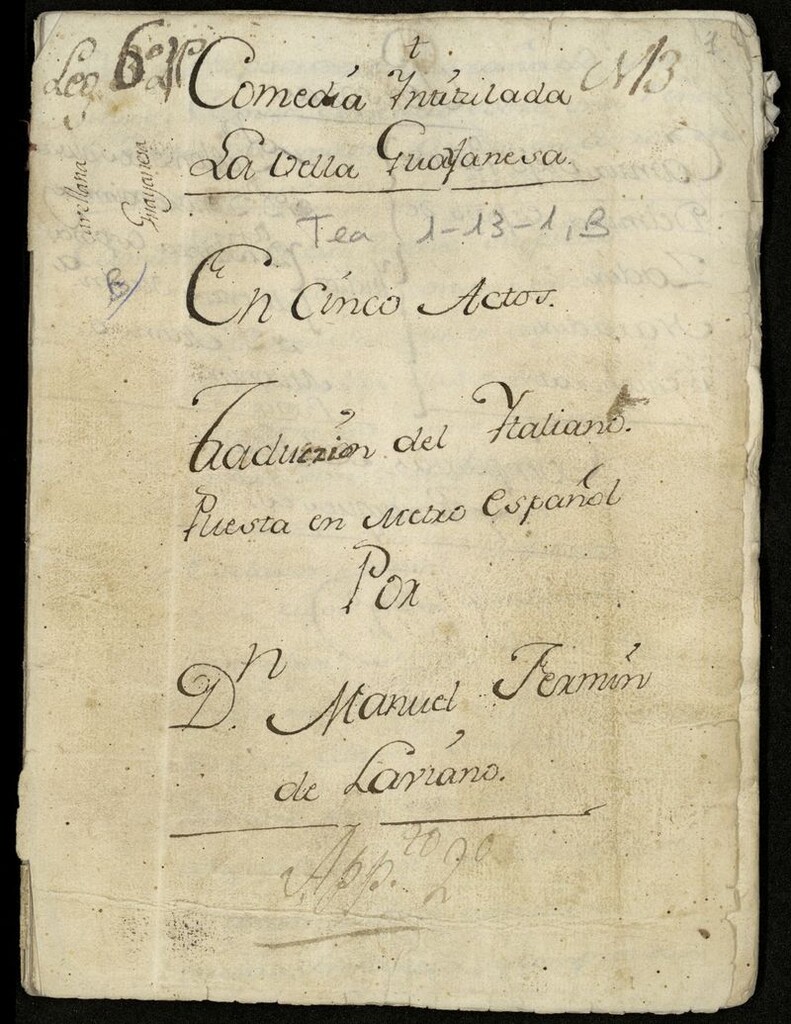 †
Leg 6º
M13
1
Comedia Intitulada
La Vella Guayanesa.
Guayanesa
Tea 1-13-1, B
B
En Cinco Actos.
Traduczion del Italiano.
Puesta en Metro Español
Por
Dn. Manuel Fermin
de Laviano.
App.to 2º